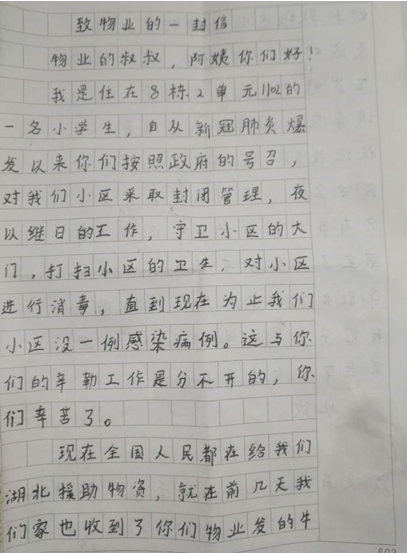 致物业的一封信
物业的叔叔，阿姨你们好！
我是住在8栋2单元1102的
一名小学生，自从新冠肺炎爆
发以来你们按照政府的号召，
对我们小区采取封闭管理，夜
以继日的工作，守卫小区的大
门，打扫小区的卫生，对小区
进行消毒，直到现在为止我们
小区没一例感染病例。这与你
们的辛勤工作是分不开的，你
们辛苦了。
现在全国人民都在给我们
湖北援助物资，就在前几天我
们家也收到了你们物业发的牛